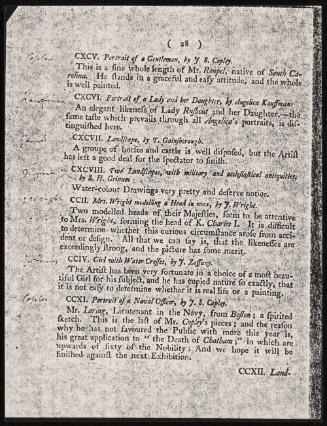 ( 28 )
CXCV. Portrait of a Gentleman, by J. S. Copley.
This is a fine whole length of Mr. Roupel, native of South Ca-
rolina. He stands in a graceful and easy attitude, and the whole
is well painted.
CXCVI. Portrait of a Lady and her Daughter, by Angelica Kauffman.
An elegant likeness of Lady Rushout and her Daughter,—the
same taste which prevails through all Angelica's portraits, is dis-
tinguished here.
CXCVII. Landscape, by T. Gainsborough.
A groupe of horses and cattle is well disposed, but the Artist
has left a good deal for the spectator to finish.
CXCVIII. Two Landscapes, with military and ecclesiastical antiquities,
by S. H. Grimm
Water-colour Drawings very pretty and deserve notice.
CCII. Mrs. Wright modelling a Head in wax, by J. Wright.
Two modelled heads of their Majesties, seem to be attentive
to Mrs. Wright, forming the head of K. Charles I. It is difficult
to determine whether this curious circumstance arose from acci-
dent or design. All that we can say is, that the likenesses are
exceedingly strong, and the picture has some merit.
CCIV. Girl with Water Cresses, by J. Zoffany.
The Artist has been very fortunate in a choice of a most beau-
tiful Girl for his subject, and he has copied nature so exactly, that
it is not easy to determine whether it is real life or a painting.
CCXI. Portrait of a Naval Officer, by J. S. Copley.
Mr. Loring, Lieutenant in the Navy, from Boston; a spirited
sketch. This is the last of Mr. Copley's pieces; and the reason
why he has not favoured the Public with more this year is,
his great application to "the Death of Chatham;" in which are
upwards of sixty of the Nobility: And we hope it will be
finished against the next Exhibition.
CCXII. Land-